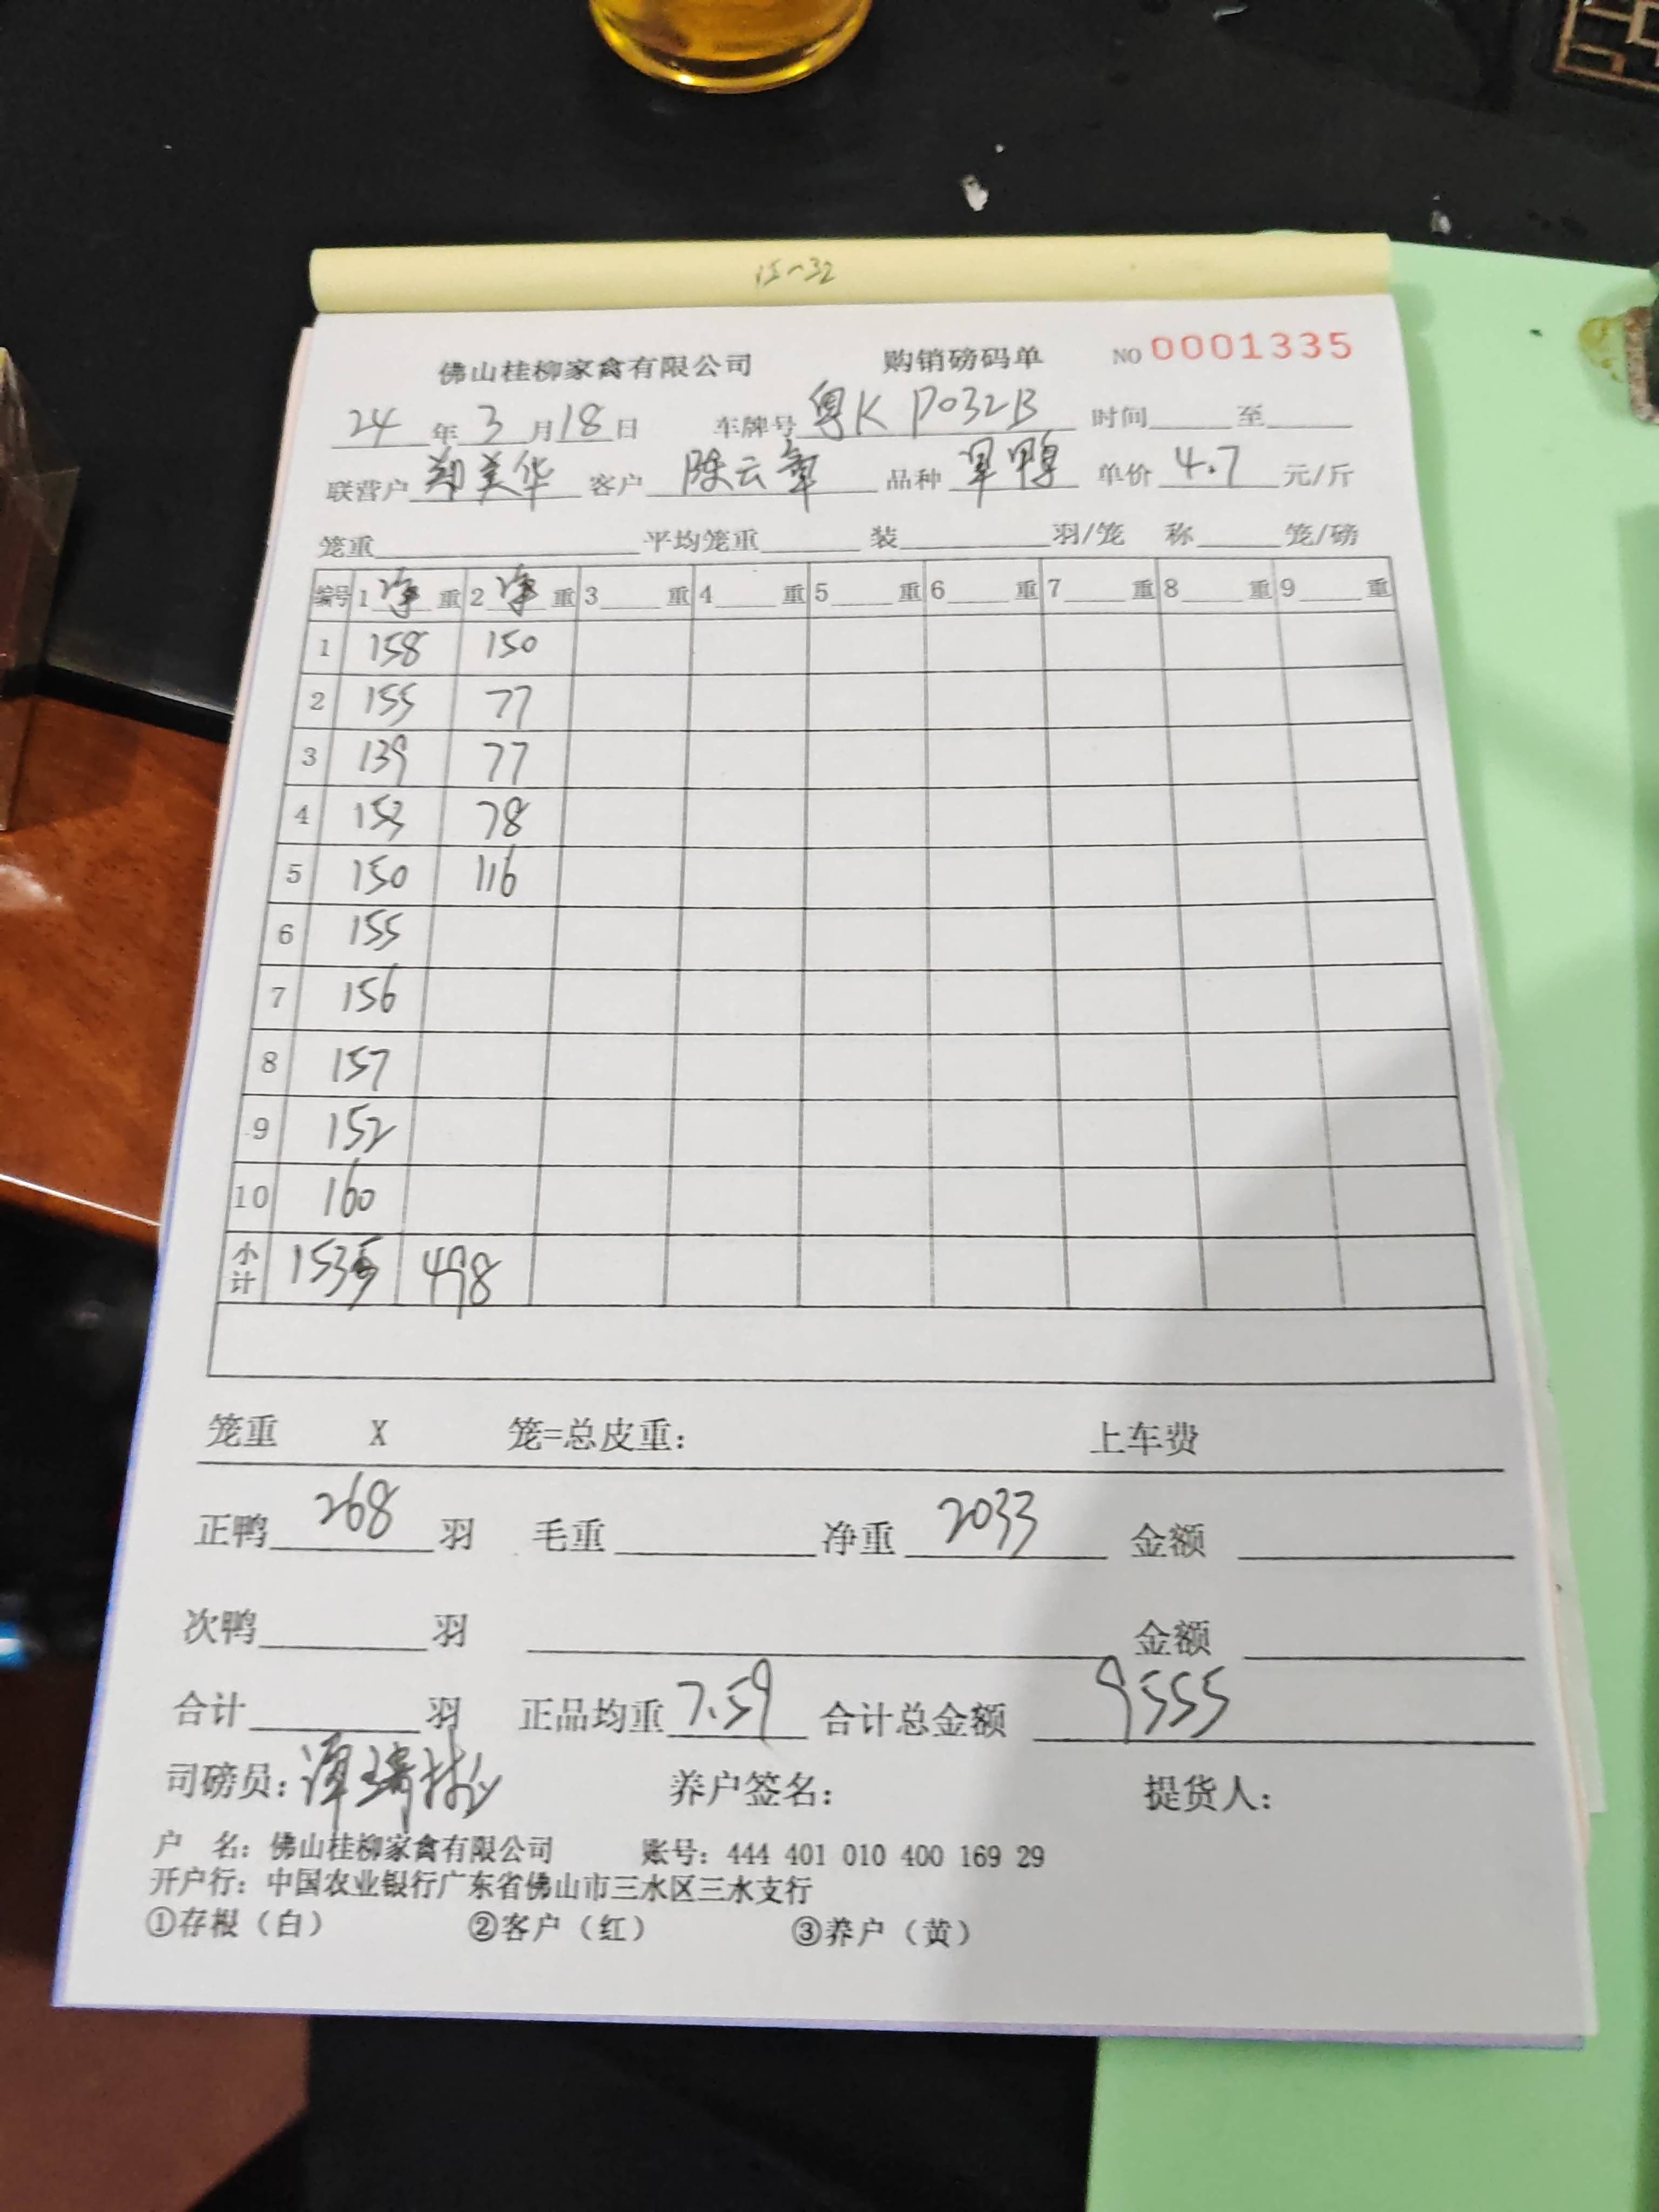 15~32
佛山桂柳家禽有限公司 购销磅码单 NO 0001335
24 年 3 月 18 日 车牌号 粤K P032B 时间 至
联营户 郑美华 客户 陈云 品种 单价 4.7 元/斤
笼重 平均笼重 装 羽/笼 称 笼/磅
编号 1 净 重 2 净 重 3 重 4 重 5 重 6 重 7 重 8 重 9 重
1 158 150
2 155 77
3 139 77
4 153 78
5 150 116
6 155
7 156
8 157
9 152
10 160
小计 1535 498
笼重 X 笼=总皮重: 上车费
正鸭 268 羽 毛重 净重 2033 金额
次鸭 羽 金额
合计 羽 正品均重 7.59 合计总金额 9555
司磅员: 养户签名: 提货人:
户 名: 佛山桂柳家禽有限公司 账号: 444 401 010 400 169 29
开户行: 中国农业银行广东省佛山市三水区三水支行
①存根（白） ②客户（红） ③养户（黄）